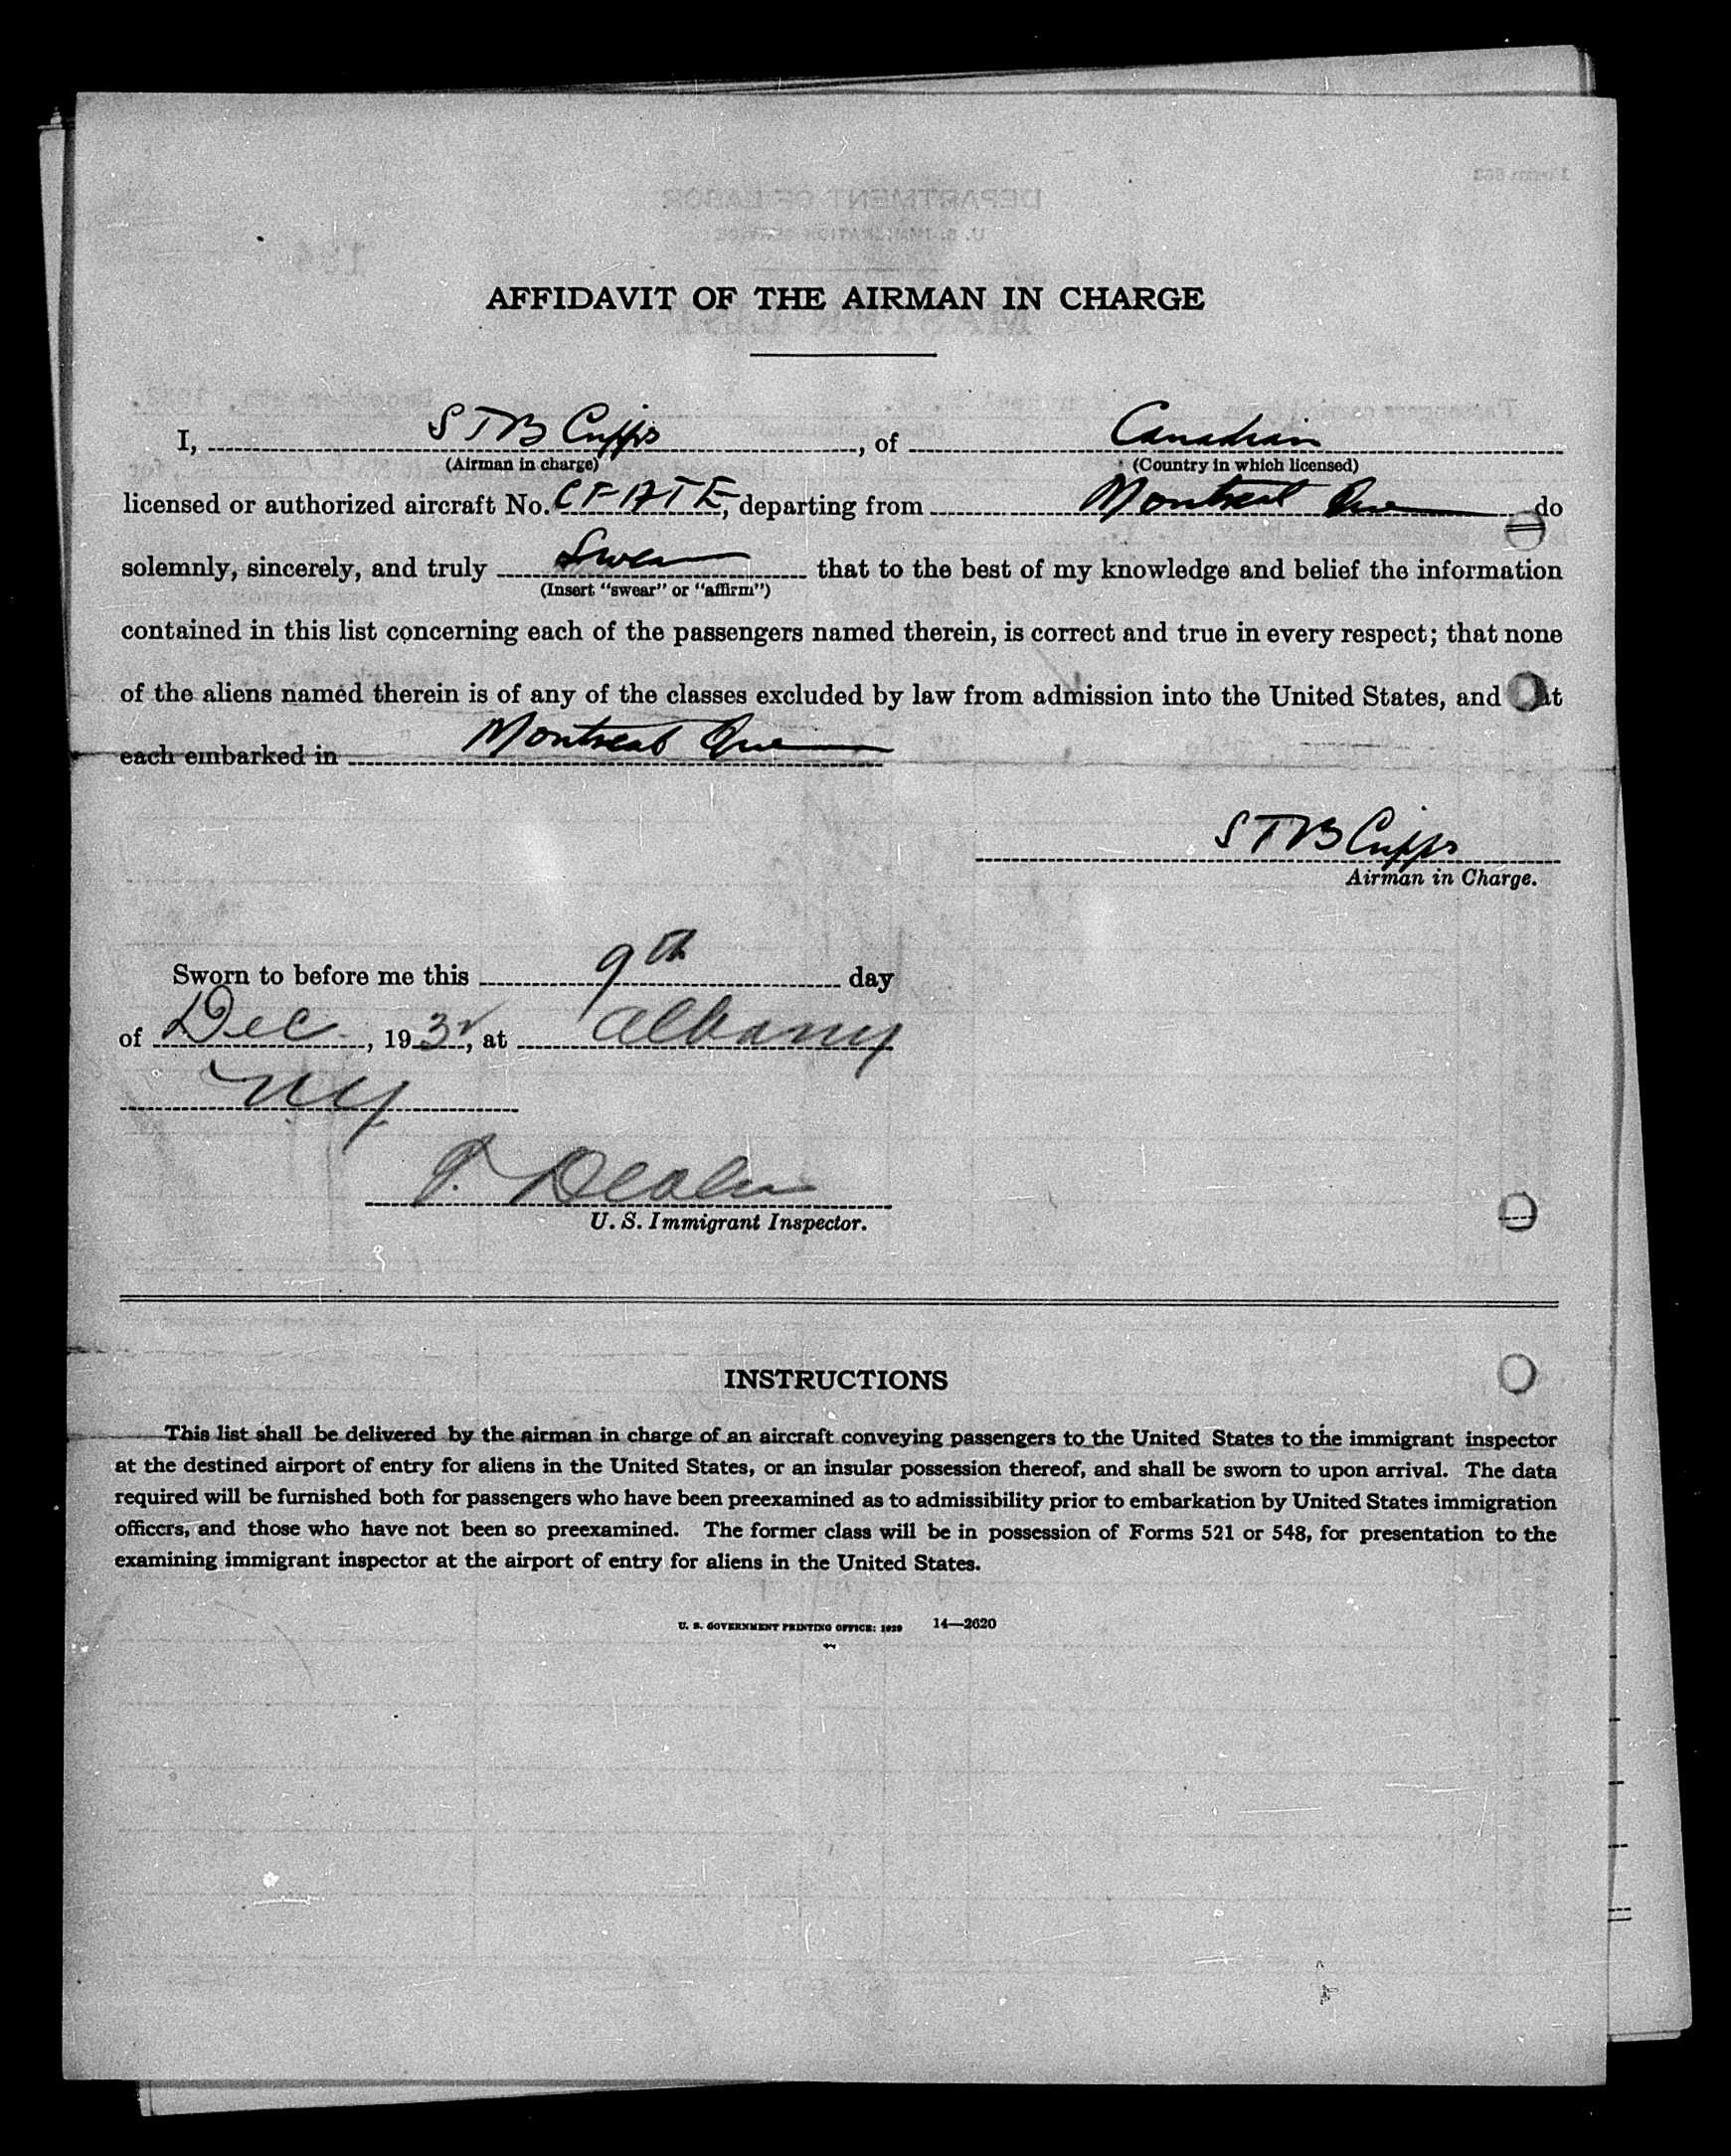 AFFIDAVIT OF THE AIRMAN IN CHARGE
I, S T B Cripps, of Canadian
(Airman in charge) (Country in which licensed)
licensed or authorized aircraft No. CF-ATE, departing from Montreal Que do
solemnly, sincerely, and truly Swear that to the best of my knowledge and belief the information
(Insert "swear" or "affirm")
contained in this list concerning each of the passengers named therein, is correct and true in every respect; that none
of the aliens named therein is of any of the classes excluded by law from admission into the United States, and that
each embarked in Montreal Que
S T B Cripps
Airman in Charge.
Sworn to before me this 9th day
of Dec, 1932, at Albany
NY
U. S. Immigrant Inspector.
INSTRUCTIONS
This list shall be delivered by the airman in charge of an aircraft conveying passengers to the United States to the immigrant inspector
at the destined airport of entry for aliens in the United States, or an insular possession thereof, and shall be sworn to upon arrival. The data
required will be furnished both for passengers who have been preexamined as to admissibility prior to embarkation by United States immigration
officers, and those who have not been so preexamined. The former class will be in possession of Forms 521 or 548, for presentation to the
examining immigrant inspector at the airport of entry for aliens in the United States.
U. S. GOVERNMENT PRINTING OFFICE: 1929 14—2620